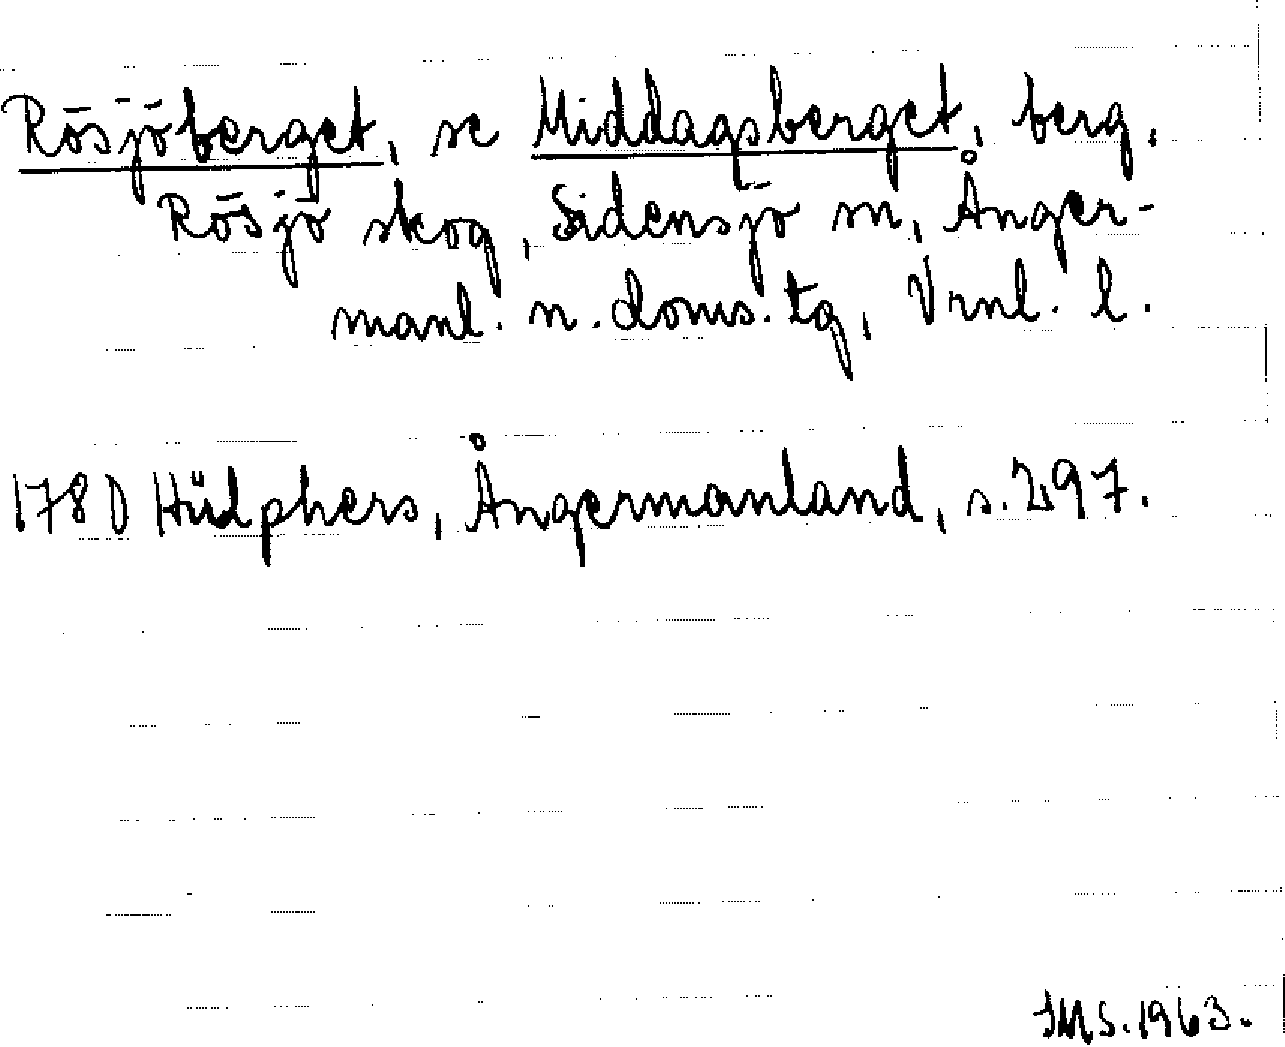 Rösjöberget, se Middagsberget, berg,
Rösjö skog, Sidensjö sn, Ånger-
manl. n. doms. tg, Vrnl. l.
1780 Hülphers, Ångermanland, s. 297.
IMS. 1963.